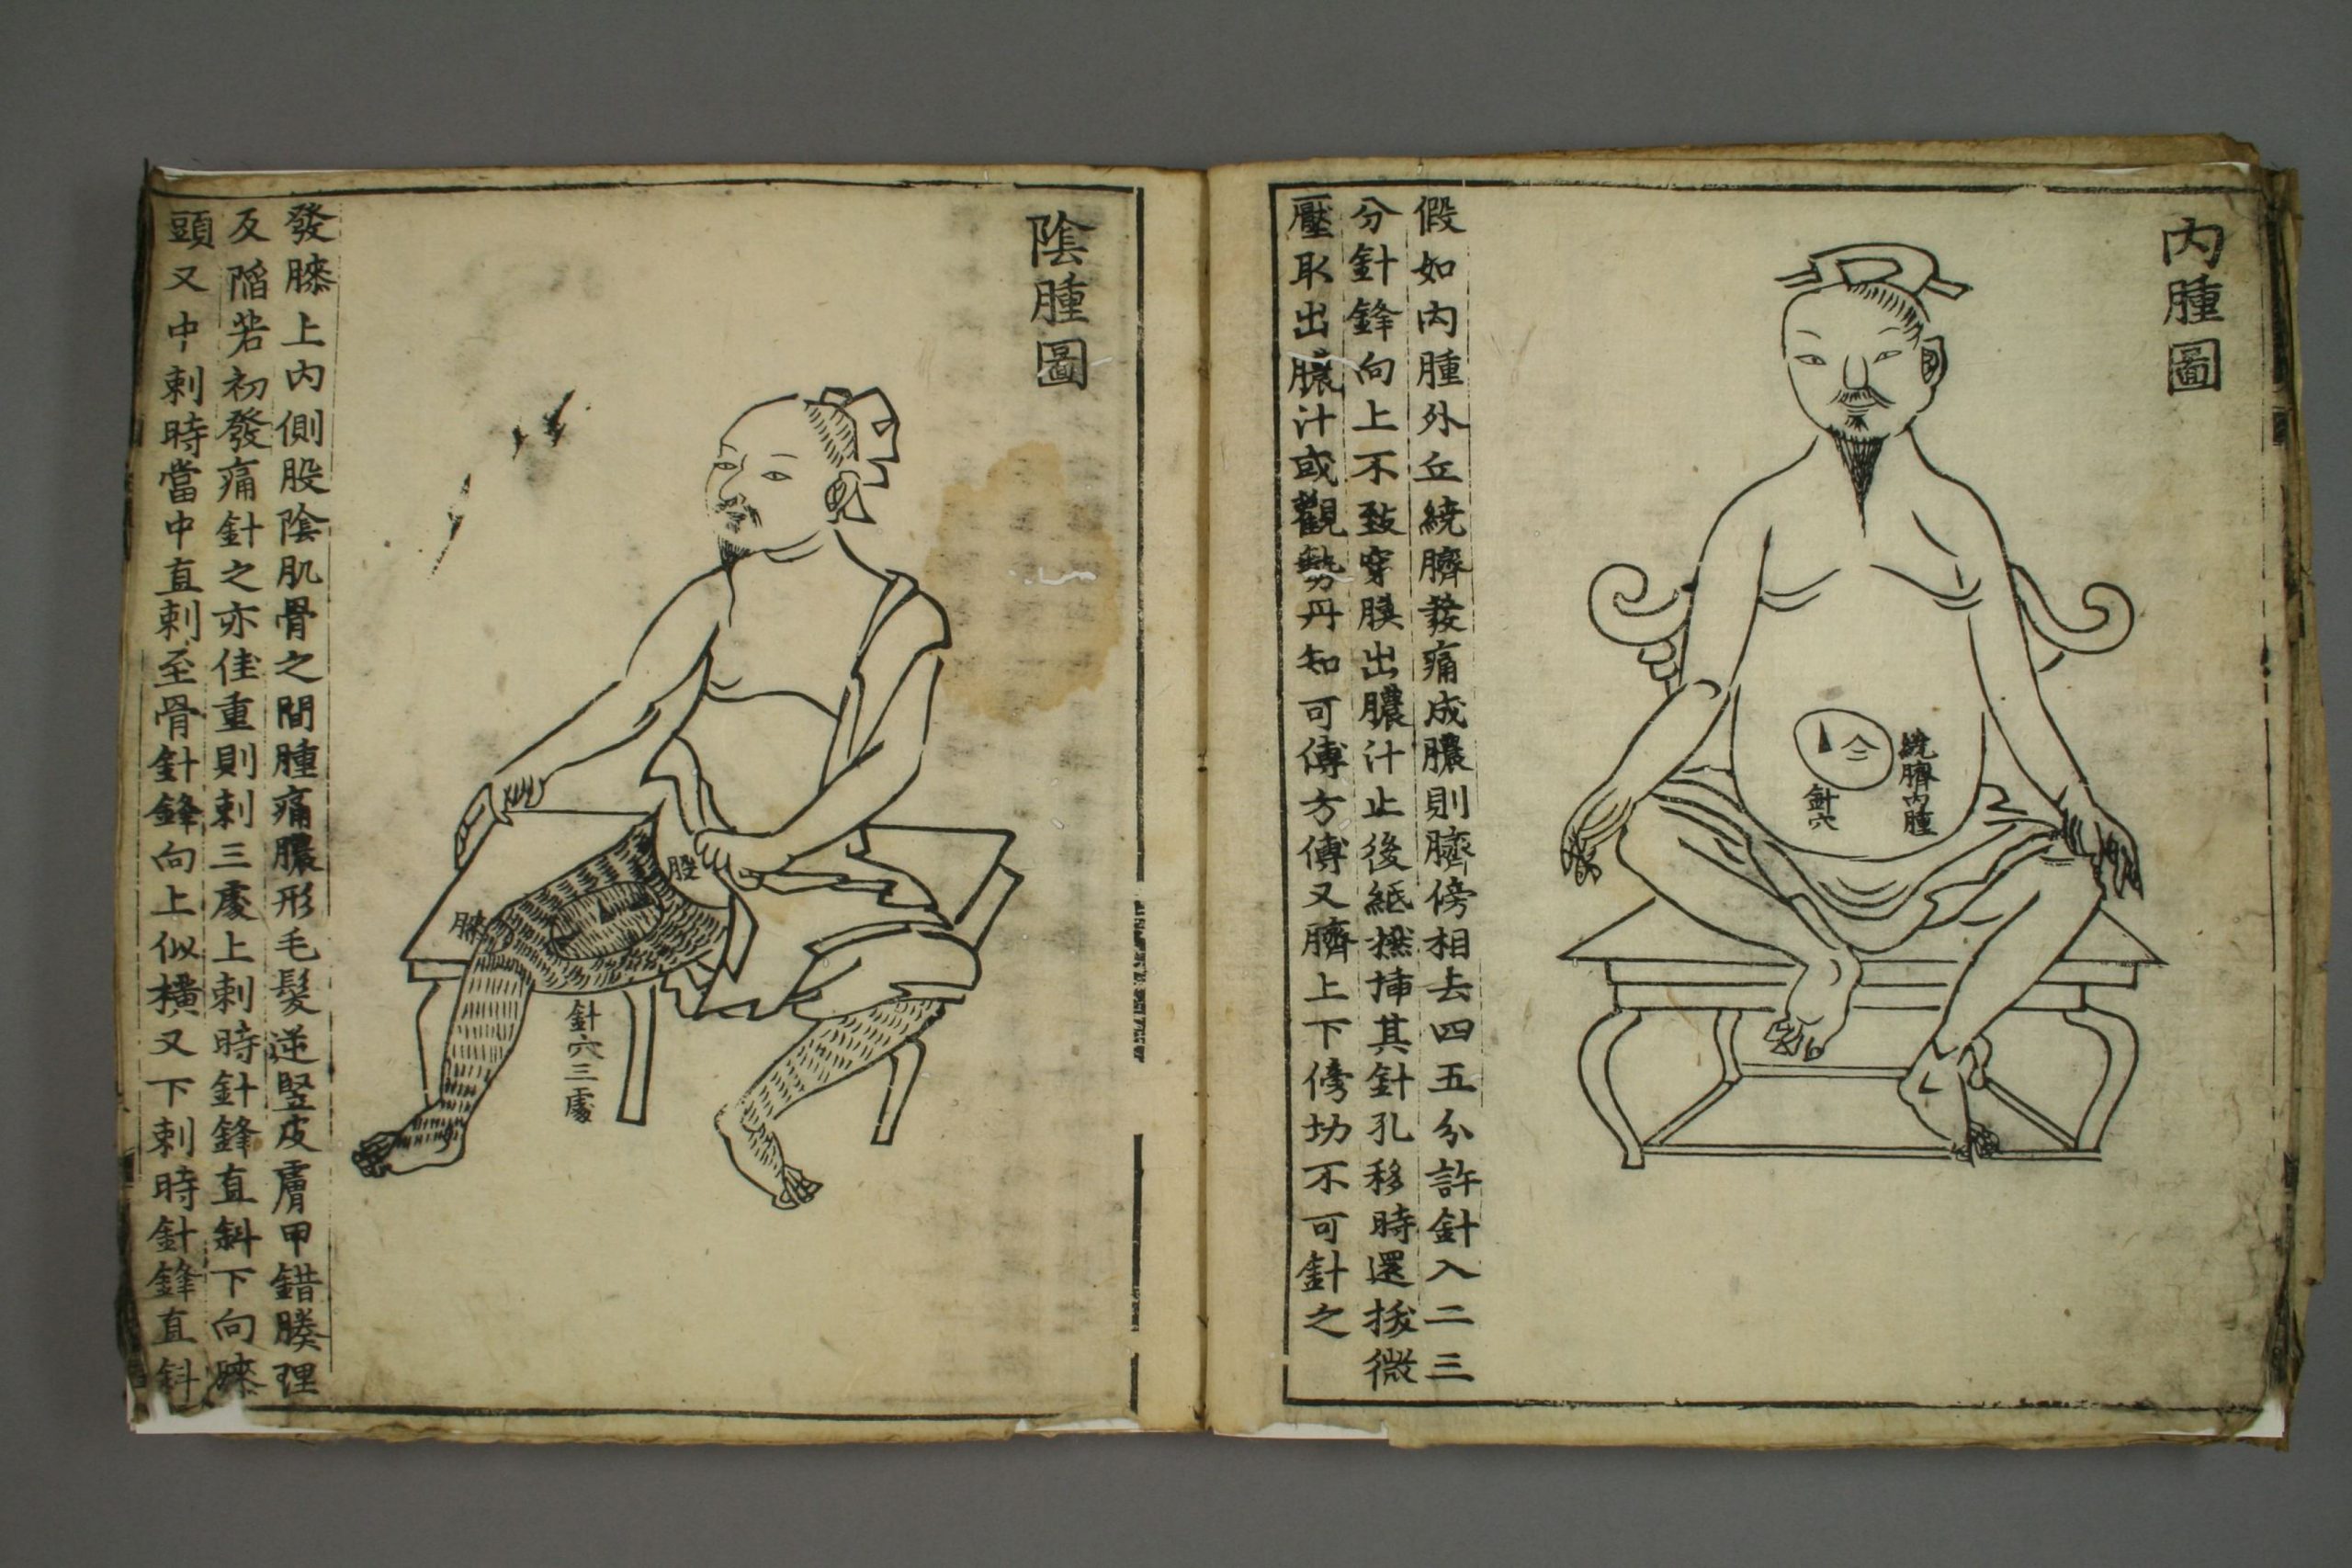 內腫圖
繞臍內腫
針穴
假如內腫外丘繞臍發痛成膿則臍傍相去四五分許針入二三
分針鋒向上不致穿膜出膿汁止後紙撚揷其針孔移時還拔微
壓取出膿汁或觀勢丹知可傅方傅又臍上下傍切不可針之
陰腫圖
股
膝
針穴三處
發膝上內側股陰肌骨之間腫痛膿形毛髮逆竪皮膚甲錯腠理
反陷若初發痛針之亦佳重則刺三處上刺時針鋒直斜下向膝
頭又中刺時當中直刺至骨針鋒向上似橫又下刺時針鋒直斜